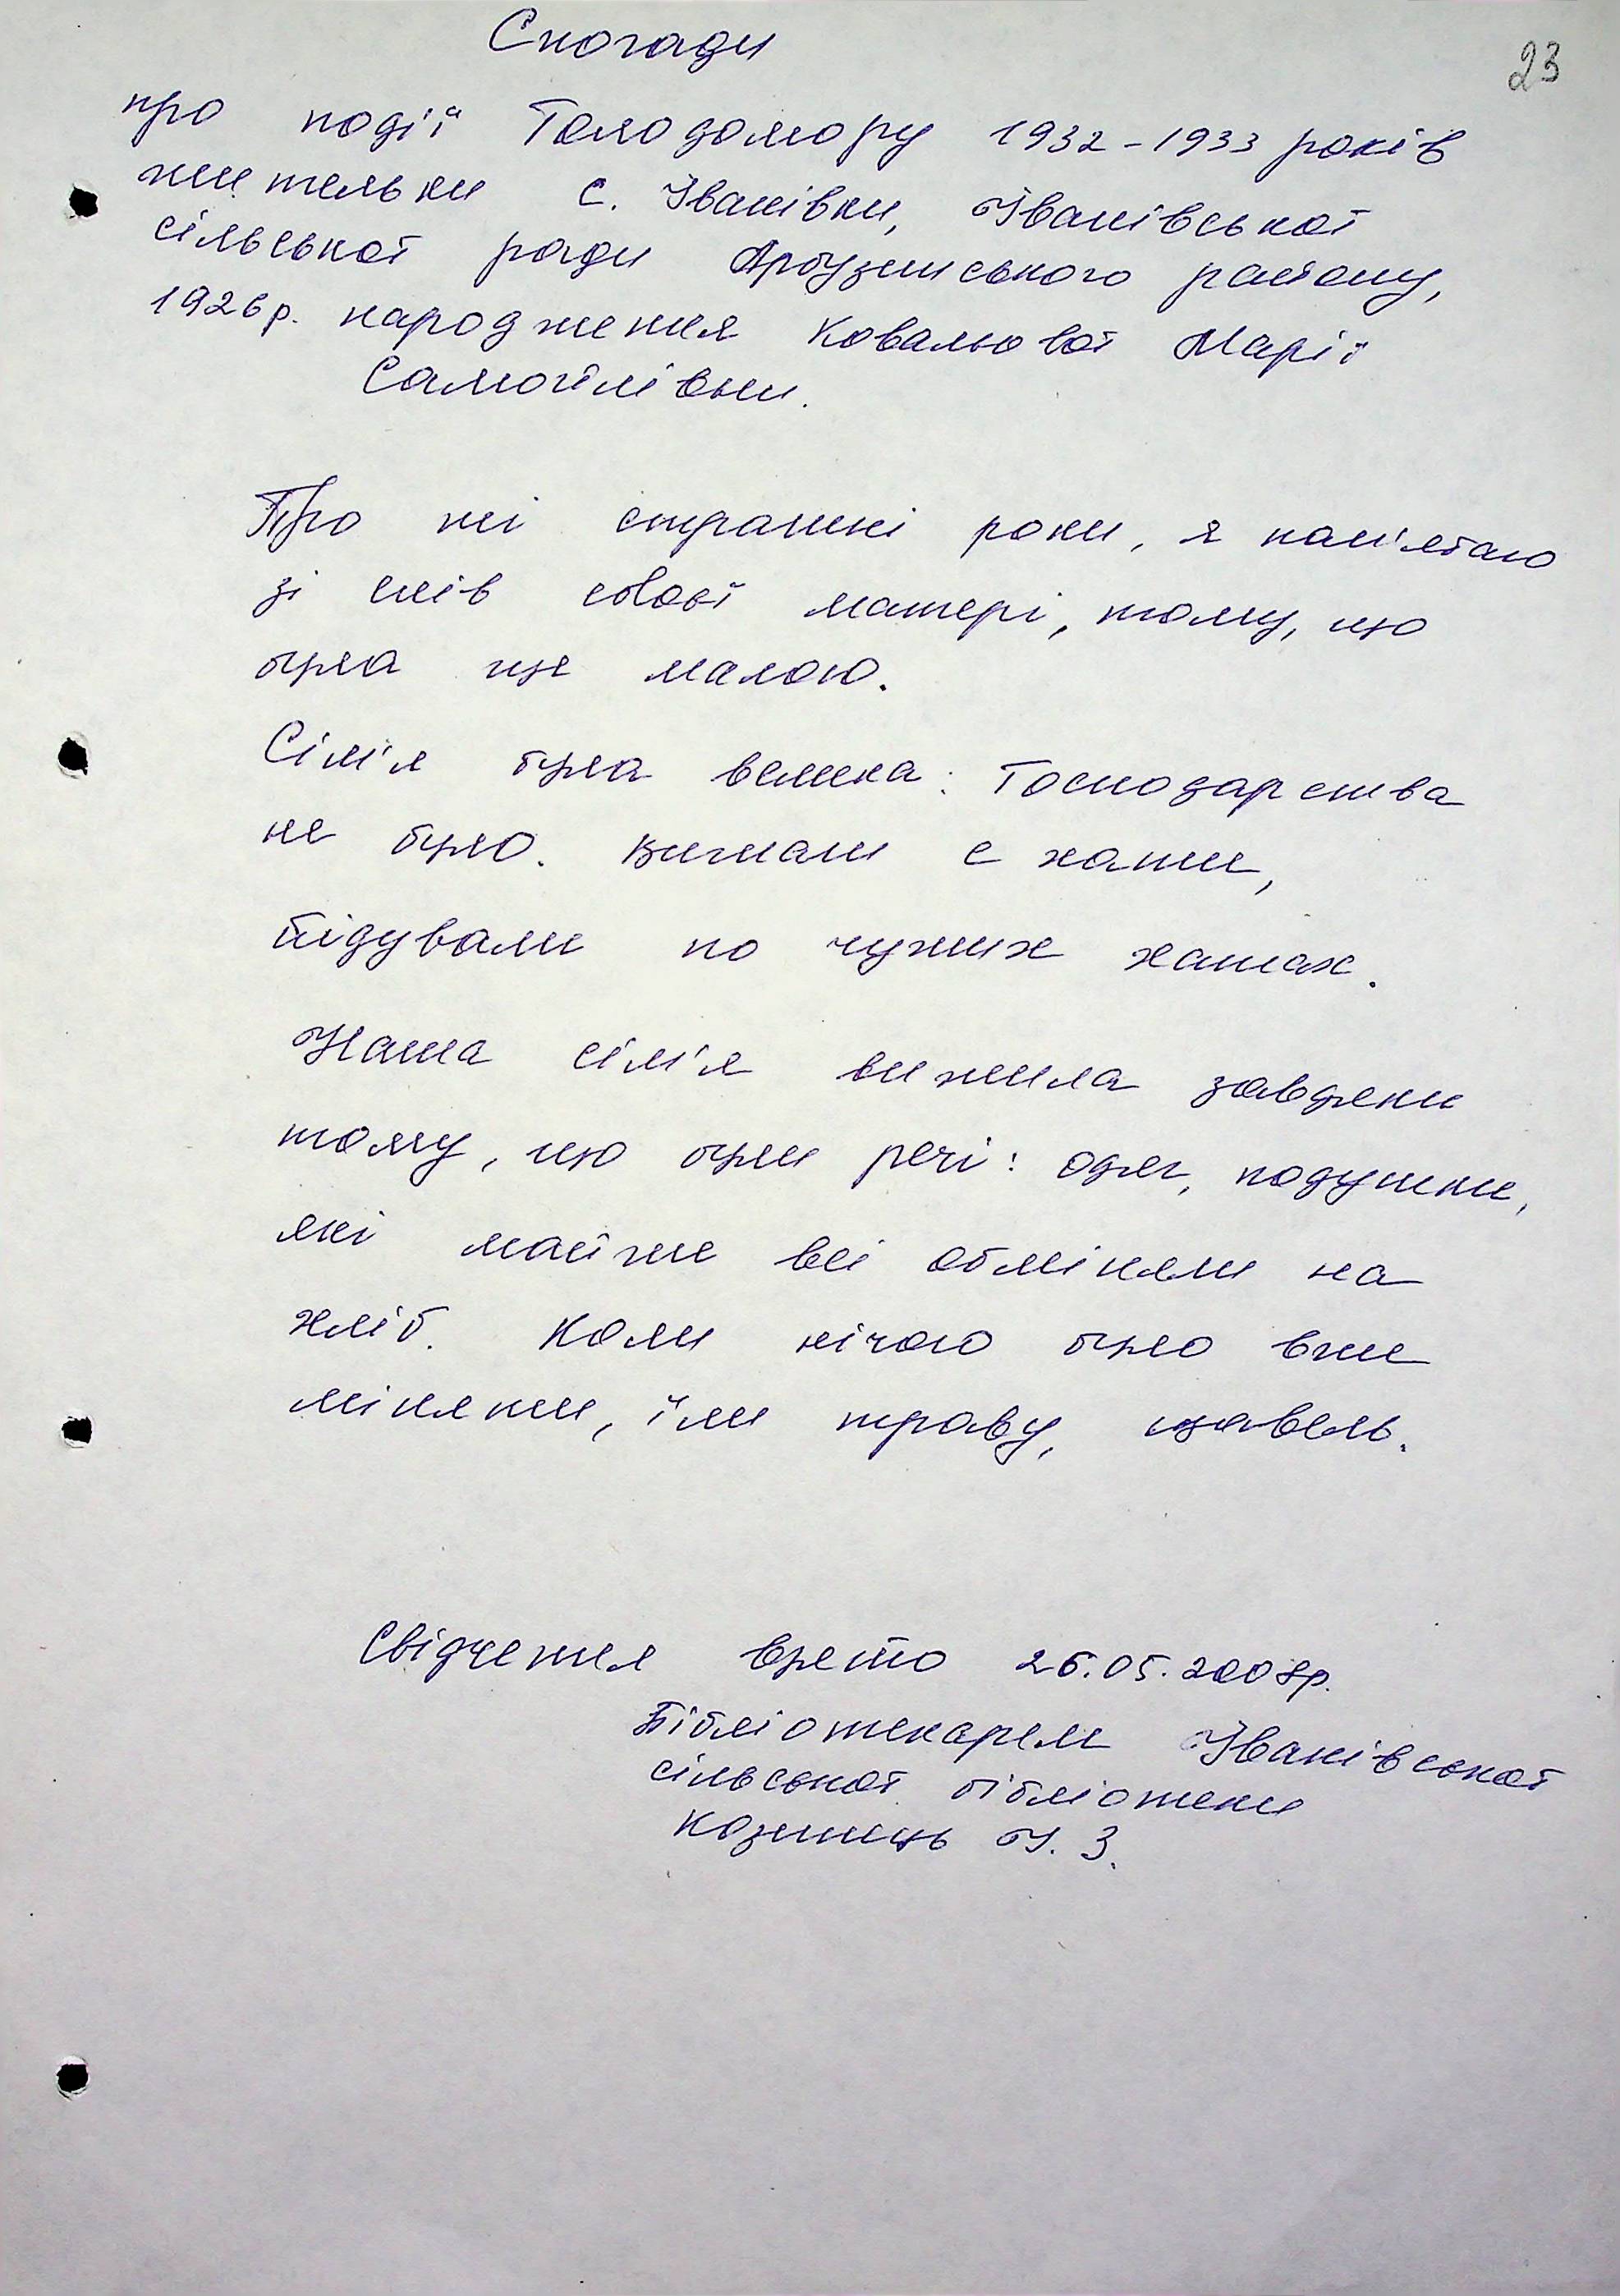 Спогади
23
про події Голодомору 1932-1933 років
жительки с. Іванівки, Іванівської
сільської ради Арбузинського району,
1926р. народження Ковальової Марії
Самоїлівни.
Про ті страшні роки, я пам'ятаю
зі слів своєї матері, тому, що
була ще малою.
Сім'я була велика. Господарства
не було. Вигнали с хати,
бідували по чужих хатах.
Наша сім'я вижила завдяки
тому, що були речі: одяг, подушки,
які майже всі обміняли на
хліб. Коли нічого було вже
міняти, їли траву, щавель.
Свідчення взято 26.05.2008р.
Бібліотекарем Іванівської
сільської бібліотеки
Козинець І. З.